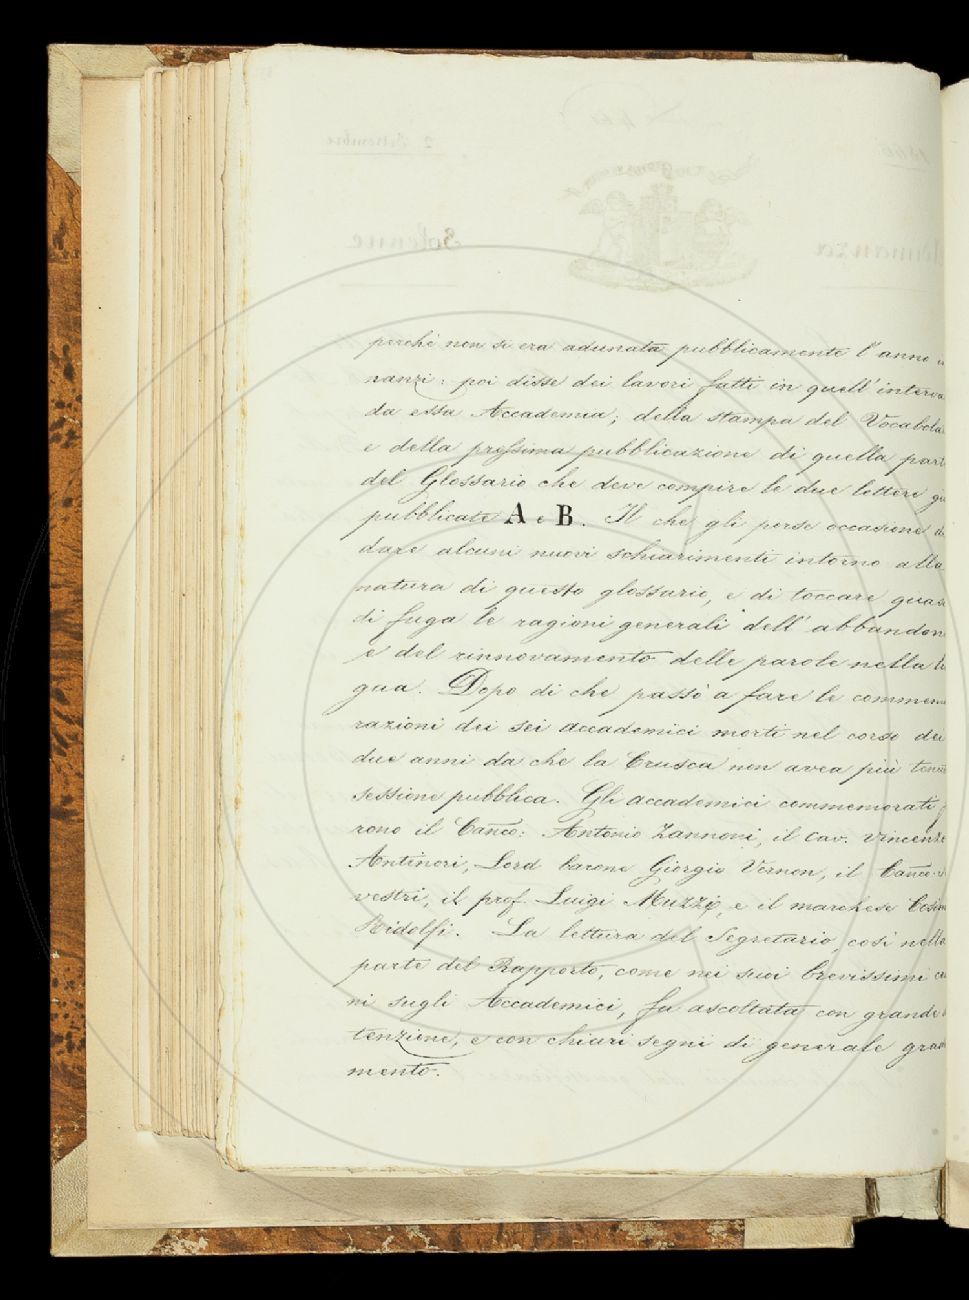 perchè non si era adunata pubblicamente l'anno in
nanzi: poi disse dei lavori fatti in quell'interva
da essa Accademia; della stampa del Vocabola
e della prossima pubblicazione di quella part
del Glossario che deve compire le due lettere già
pubblicate A e B. Il che gli porse occasione di
dare alcuni nuovi schiarimenti intorno alla
natura di questo glossario, e di toccare quasi
di fuga le ragioni generali dell'abbandono
e del rinnovamento delle parole nella lin
gua. Dopo di che passò a fare le commemo
razioni dei sei accademici morti nel corso dei
due anni da che la Crusca non avea più tenuta
sessione pubblica. Gli accademici commemorati fu
rono il Canco: Antonio Zannoni, il cav. Vincenzo
Antinori, Lord barone Giorgio Vernon, il Canco.
vestri, il prof. Luigi Muzzi, e il marchese Cosimo
Ridolfi. La lettura del Segretario così nella
parte del Rapporto, come nei suoi brevissimi cen
ni sugli Accademici, fu ascoltata con grande
tenzione, e con chiari segni di generale gradi
mento.